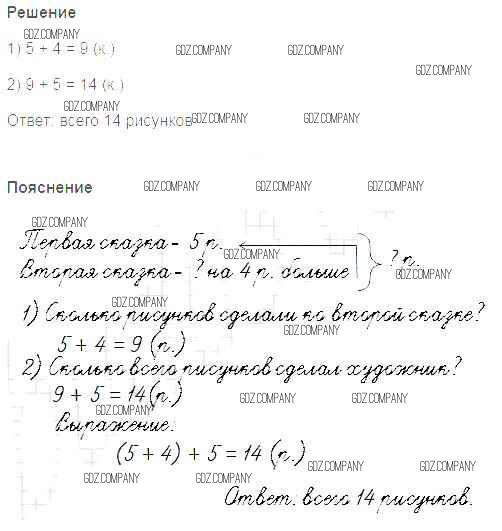 Решение
GDZ.COMPANY
1) 5 + 4 = 9 (к.) GDZ.COMPANY GDZ.COMPANY
GDZ.COMPANY
2) 9 + 5 = 14 (к.)
GDZ.COMPANY
Ответ: всего 14 рисунков GDZ.COMPANY GDZ.COMPANY
Пояснение GDZ.COMPANY GDZ.COMPANY GDZ.COMPANY
GDZ.COMPANY
Первая сказка - 5 р.
GDZ.COMPANY ? р.
Вторая сказка - ? на 4 р. больше GDZ.COMPANY
GDZ.COMPANY
1) Сколько рисунков сделали ко второй сказке?
GDZ.COMPANY
5 + 4 = 9 (р.)
2) Сколько всего рисунков сделал художник?
9 + 5 = 14 (р.) GDZ.COMPANY GDZ.COMPANY
GDZ.COMPANY
Выражение.
(5 + 4) + 5 = 14 (р.)
GDZ.COMPANY GDZ.COMPANY
GDZ.COMPANY GDZ.COMPANY
Ответ: всего 14 рисунков.